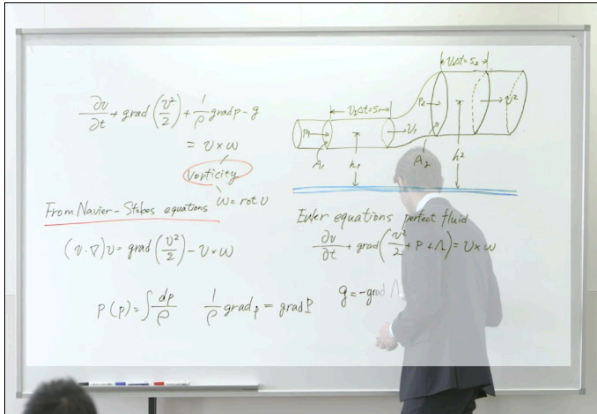 ∂v/∂t + grad(v²/2) + 1/ρ grad p - g
= v × ω
Vorticity
ω = rot v
From Navier-Stokes equations
(v·∇)v = grad(v²/2) - v × ω
P(p) = ∫ dp/ρ   1/ρ grad p = grad P
A₁
h₁
A₂
h²
Euler equations perfect fluid
∂v/∂t + grad(v²/2 + P + Λ) = v × ω
g = -grad Λ